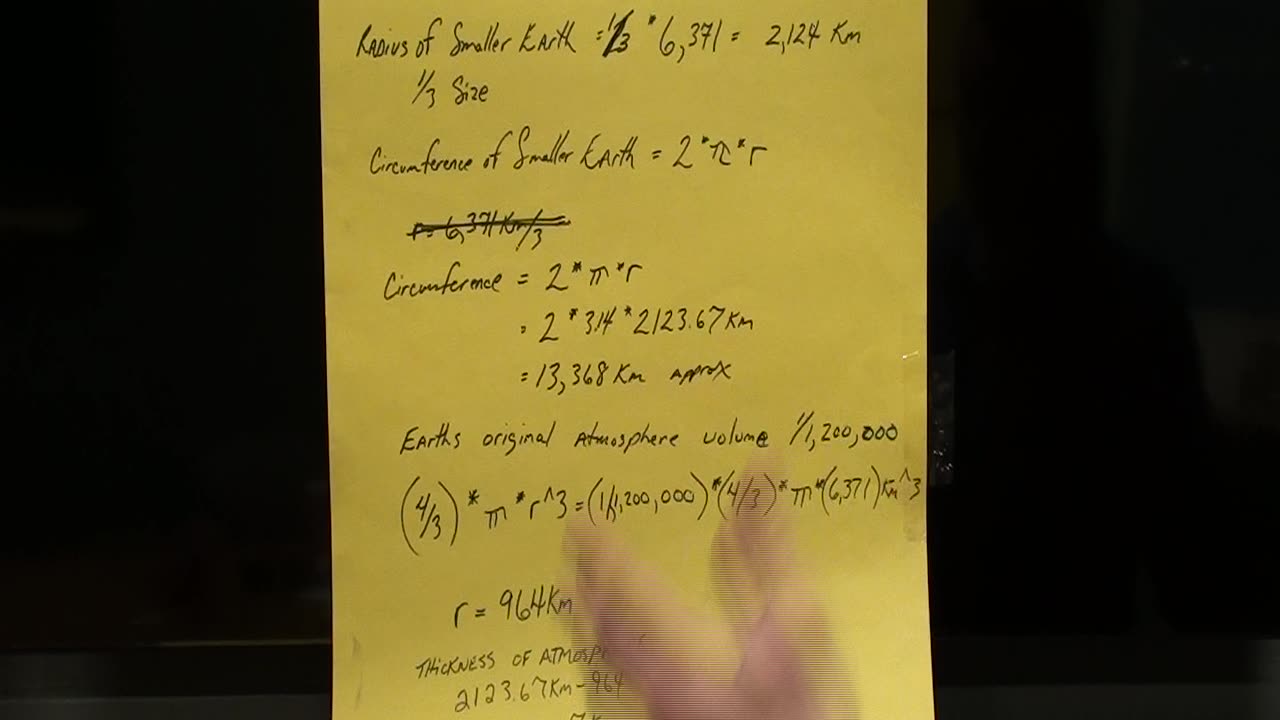 Radius of Smaller Earth = 1/3 * 6,371 = 2,124 Km
1/3 Size
Circumference of Smaller Earth = 2 * π * r
r = 6,371 Km/3
Circumference = 2 * π * r
= 2 * 3.14 * 2123.67 Km
= 13,368 Km approx
Earths original Atmosphere volume 1/1,200,000
(4/3) * π * r^3 = (1/1,200,000) * (4/3) * π * (6,371) Km^3
r = 964 Km
THICKNESS OF
2123.67 Km - 964